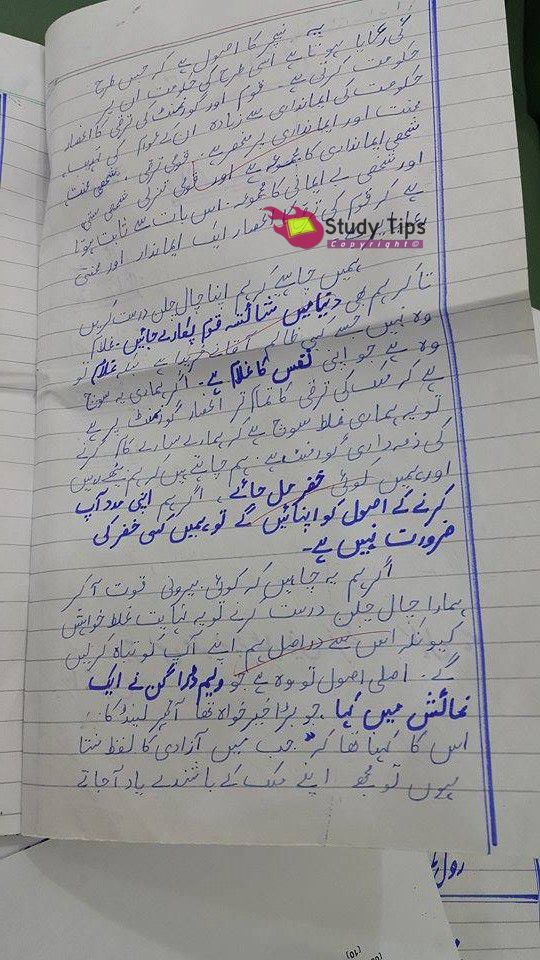 یہ نیچر کا اصول ہے کہ جس طرح
کی رعایا ہوتا ہے اسی طرح کی حکومت ان پر
حکومت کرتی ہے۔ قوم اور گورنمنٹ کی ترقی کا انحصار
حکومت کی ایمانداری سے زیادہ ان کے قوم کی
محنت اور ایمانداری پر منحصر ہے۔ قومی ترقی، شخصی محنت
شخصی ایمانداری کا مجموعہ ہے اور قومی تنزلی شخصی سستی
اور شخصی بے ایمانی کا مجموعہ۔ اس بات سے ثابت ہوتا
ہے کہ قوم کی انحصار ایک ایماندار اور محنتی
Study Tips
Copyright©
ہمیں چاہیے کہ ہم اپنا چال چلن درست کریں
تا کہ ہم بھی دنیا میں شائستہ قوم پکارے جائیں۔ غلام
وہ نہیں جسے کسی ظالم آقا نے خریدا ہے غلام تو
وہ ہے جو اپنی نفس کا غلام ہے۔ اگر ہماری یہ سوچ
ہے کہ ملک کی ترقی کا تمام تر انحصار گورنمنٹ پر ہے
تو یہ ہماری غلط سوچ ہے کہ ہمارے سارے کام کرنے
کی ذمہ داری گورنمنٹ ہے۔ ہم چاہتے ہیں کہ ہم
اور ہمیں کوئی خضر مل جائے۔ اگر ہم اپنی مدد آپ
کرنے کے اصول کو اپنائیں گے تو ہمیں کسی خضر کی
ضرورت نہیں ہے۔
اگر ہم یہ چاہیں کہ کوئی بیرونی قوت آ کر
ہمارا چال چلن درست کرے تو یہ نہایت غلط خواہش
کیونکہ اس سے دراصل ہم اپنے آپ کو تباہ کر لیں
گے۔ اصلی اصول تو وہ ہے جو ولیم ڈراگن نے ایک
نمائش میں کہا جو بڑا خیر خواہ تھا آئر لینڈ کا۔
اس کا کہنا تھا کہ "جب میں آزادی کا لفظ سنتا
ہوں تو مجھ اپنے ملک کے باشندے یاد آجاتے
رول
(10)